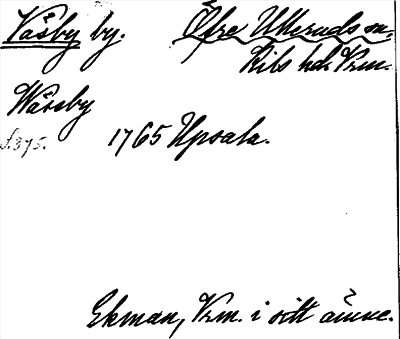 Våsby by. Öfre Ulleruds sn.
Kils hd. Vrm.
Wåseby
s. 375. 1765 Upsala.
Ekman, Vrm. i sitt ämne.